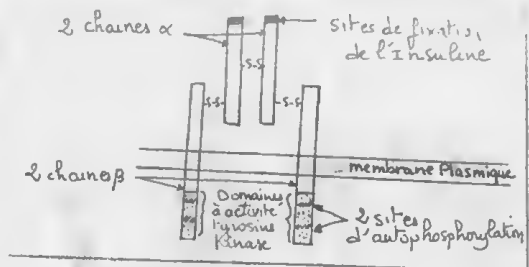 2 chaines α
sites de fixation
de l'Insuline
S-S
S-S
S-S
membrane Plasmique
2 chaines β
Domaines
à activité
tyrosine
Kinase
2 sites
d'autophosphorylation